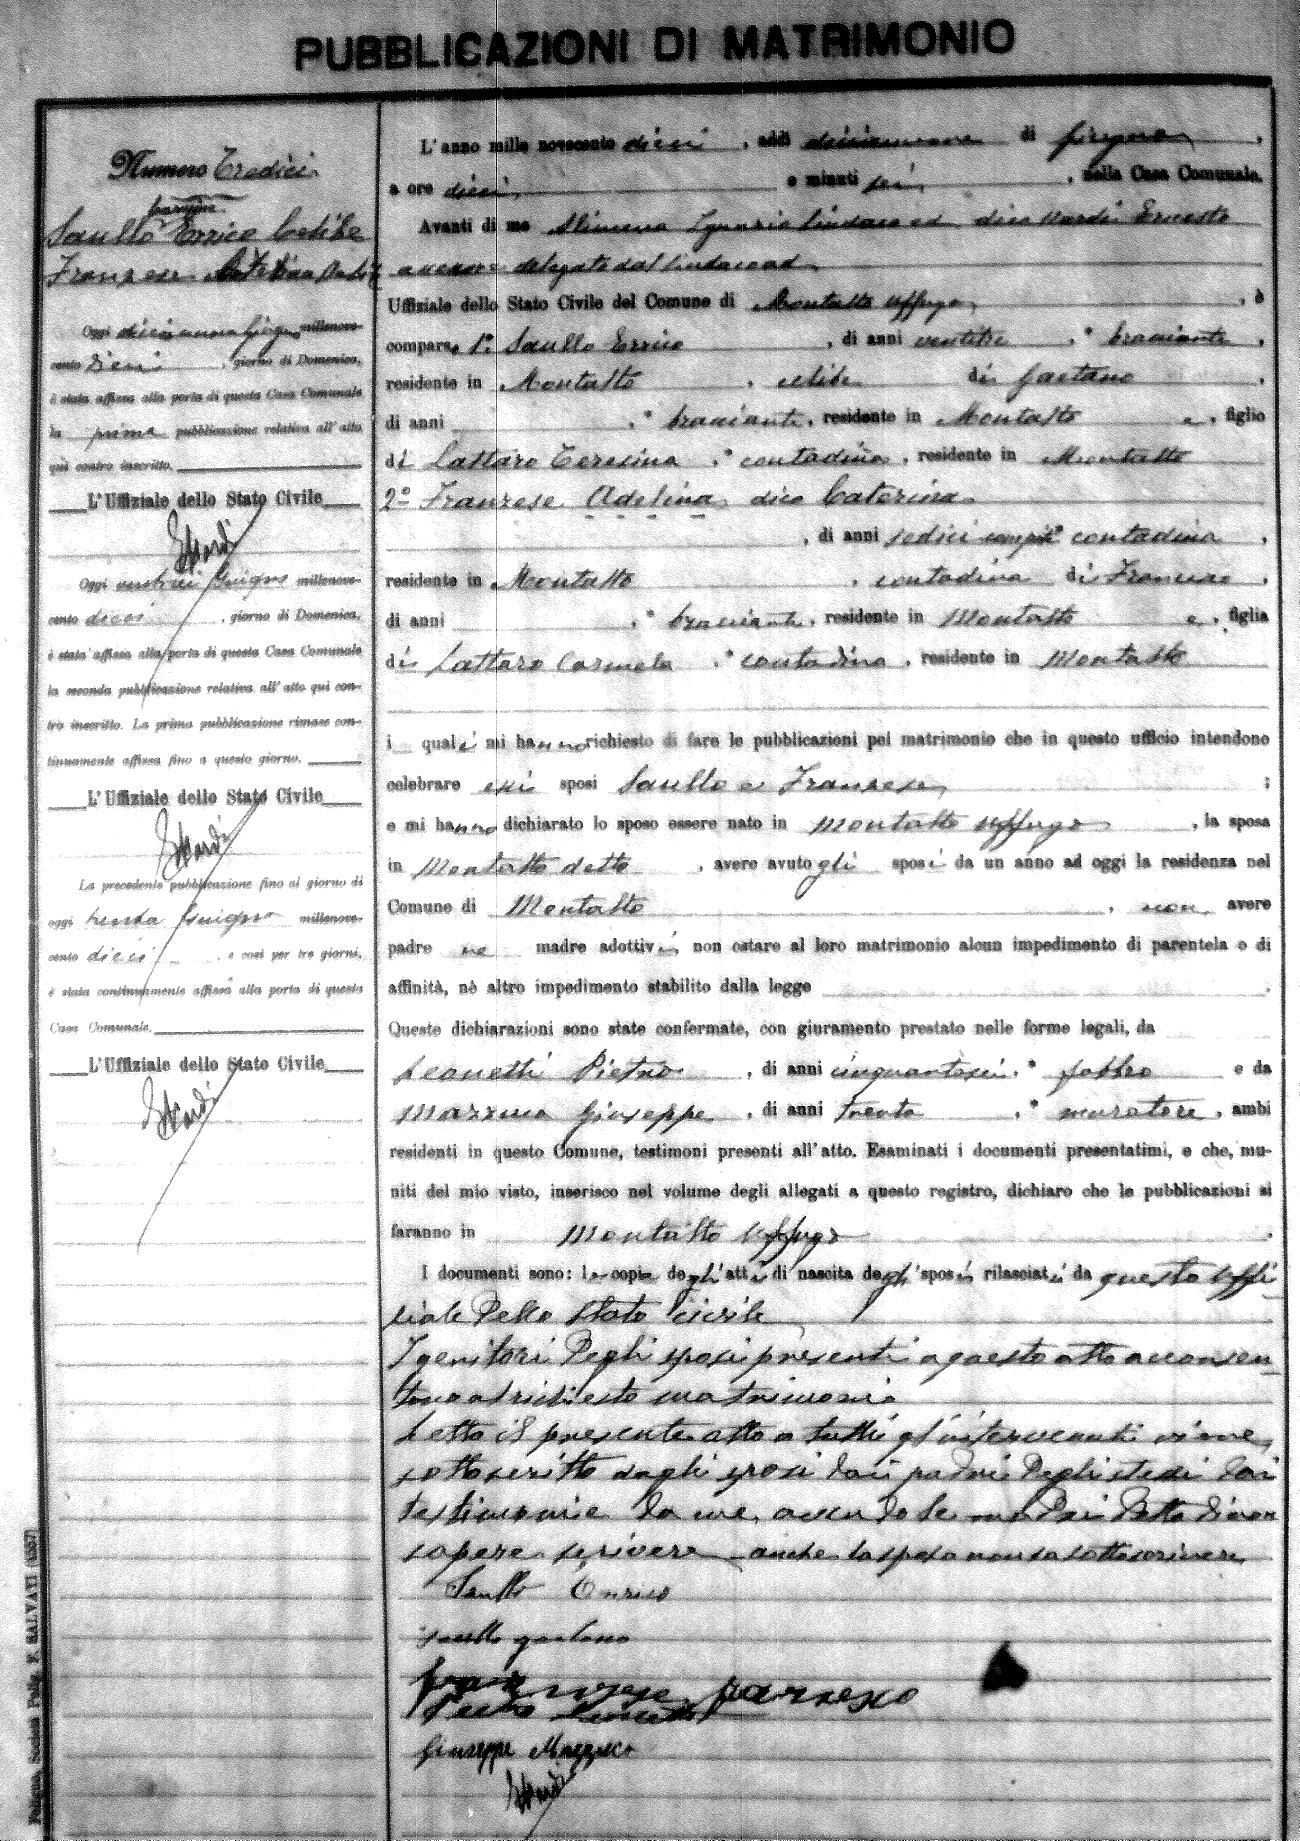 PUBBLICAZIONI DI MATRIMONIO
Numero Tredici
Saullo Errico Celibe
Franzese
Oggi diciannove Giugno millenove-
cento Dieci, giorno di Domenica,
è stata affissa alla porta di questa Casa Comunale
la prima pubblicazione relativa all'atto
qui contro inscritto.
L'Uffiziale dello Stato Civile
ENardi
Oggi ventisei Giugno millenove-
cento dieci, giorno di Domenica,
è stata affissa alla porta di questa Casa Comunale
la seconda pubblicazione relativa all'atto qui con-
tro inscritto. La prima pubblicazione rimase con-
tinuamente affissa fino a questo giorno.
L'Uffiziale dello Stato Civile
ENardi
La precedente pubblicazione fino al giorno di
oggi trenta Giugno millenove-
cento dieci, e così per tre giorni,
è stata continuamente affissa alla porta di questa
Casa Comunale.
L'Uffiziale dello Stato Civile
ENardi
L'anno mille novecento dieci, addì diciannove di giugno,
a ore dieci e minuti sei, nella Casa Comunale.
Avanti di me Alimena Ignazio Sindaco ed dico Nardi Ernesto
assessore delegato dal Sindaco ad
Uffiziale dello Stato Civile del Comune di Montalto Uffugo, è
comparso 1° Saullo Errico, di anni ventitre, bracciante,
residente in Montalto, celibe di Gaetano
di anni, bracciante, residente in Montalto e, figlio
di Lattaro Teresina, contadina, residente in Montalto
2° Franzese Adelina dico Caterina
, di anni sedici compiti contadina,
residente in Montalto, contadina di Francesco,
di anni, bracciante, residente in Montalto e, figlia
di Lattaro Carmela, contadina, residente in Montalto
i quali mi hanno richiesto di fare le pubblicazioni pel matrimonio che in questo ufficio intendono
celebrare essi sposi Saullo e Franzese;
e mi hanno dichiarato lo sposo essere nato in Montalto Uffugo, la sposa
in Montalto detto, avere avuto gli sposi da un anno ad oggi la residenza nel
Comune di Montalto, non avere
padre ne madre adottivi, non ostare al loro matrimonio alcun impedimento di parentela o di
affinità, nè altro impedimento stabilito dalla legge.
Queste dichiarazioni sono state confermate, con giuramento prestato nelle forme legali, da
Leonetti Pietro, di anni cinquantasei, fabbro e da
Mazzuca Giuseppe, di anni trenta, muratore, ambi
residenti in questo Comune, testimoni presenti all'atto. Esaminati i documenti presentatimi, e che, mu-
niti del mio visto, inserisco nel volume degli allegati a questo registro, dichiaro che le pubblicazioni si
faranno in Montalto Uffugo.
I documenti sono: le copie degli atti di nascita degli sposi rilasciati da questo Uffi
ziale Dello Stato Civile
I genitori Degli sposi presenti a questo atto acconsen
tono al richiesto matrimonio
Letto il presente atto a tutti gl'intervenuti viene
sottoscritto dagli sposi Dai padri Degli stessi Dai
testimonie Da me, avendo le madri Detto Di non
sapere scrivere anche la sposa non sa sottoscrivere
Saullo Enrico
Saullo gaetano
franzese francesco
Giuseppe Mazzuca
ENardi
Foligno, Società Poligr. F. SALVATI